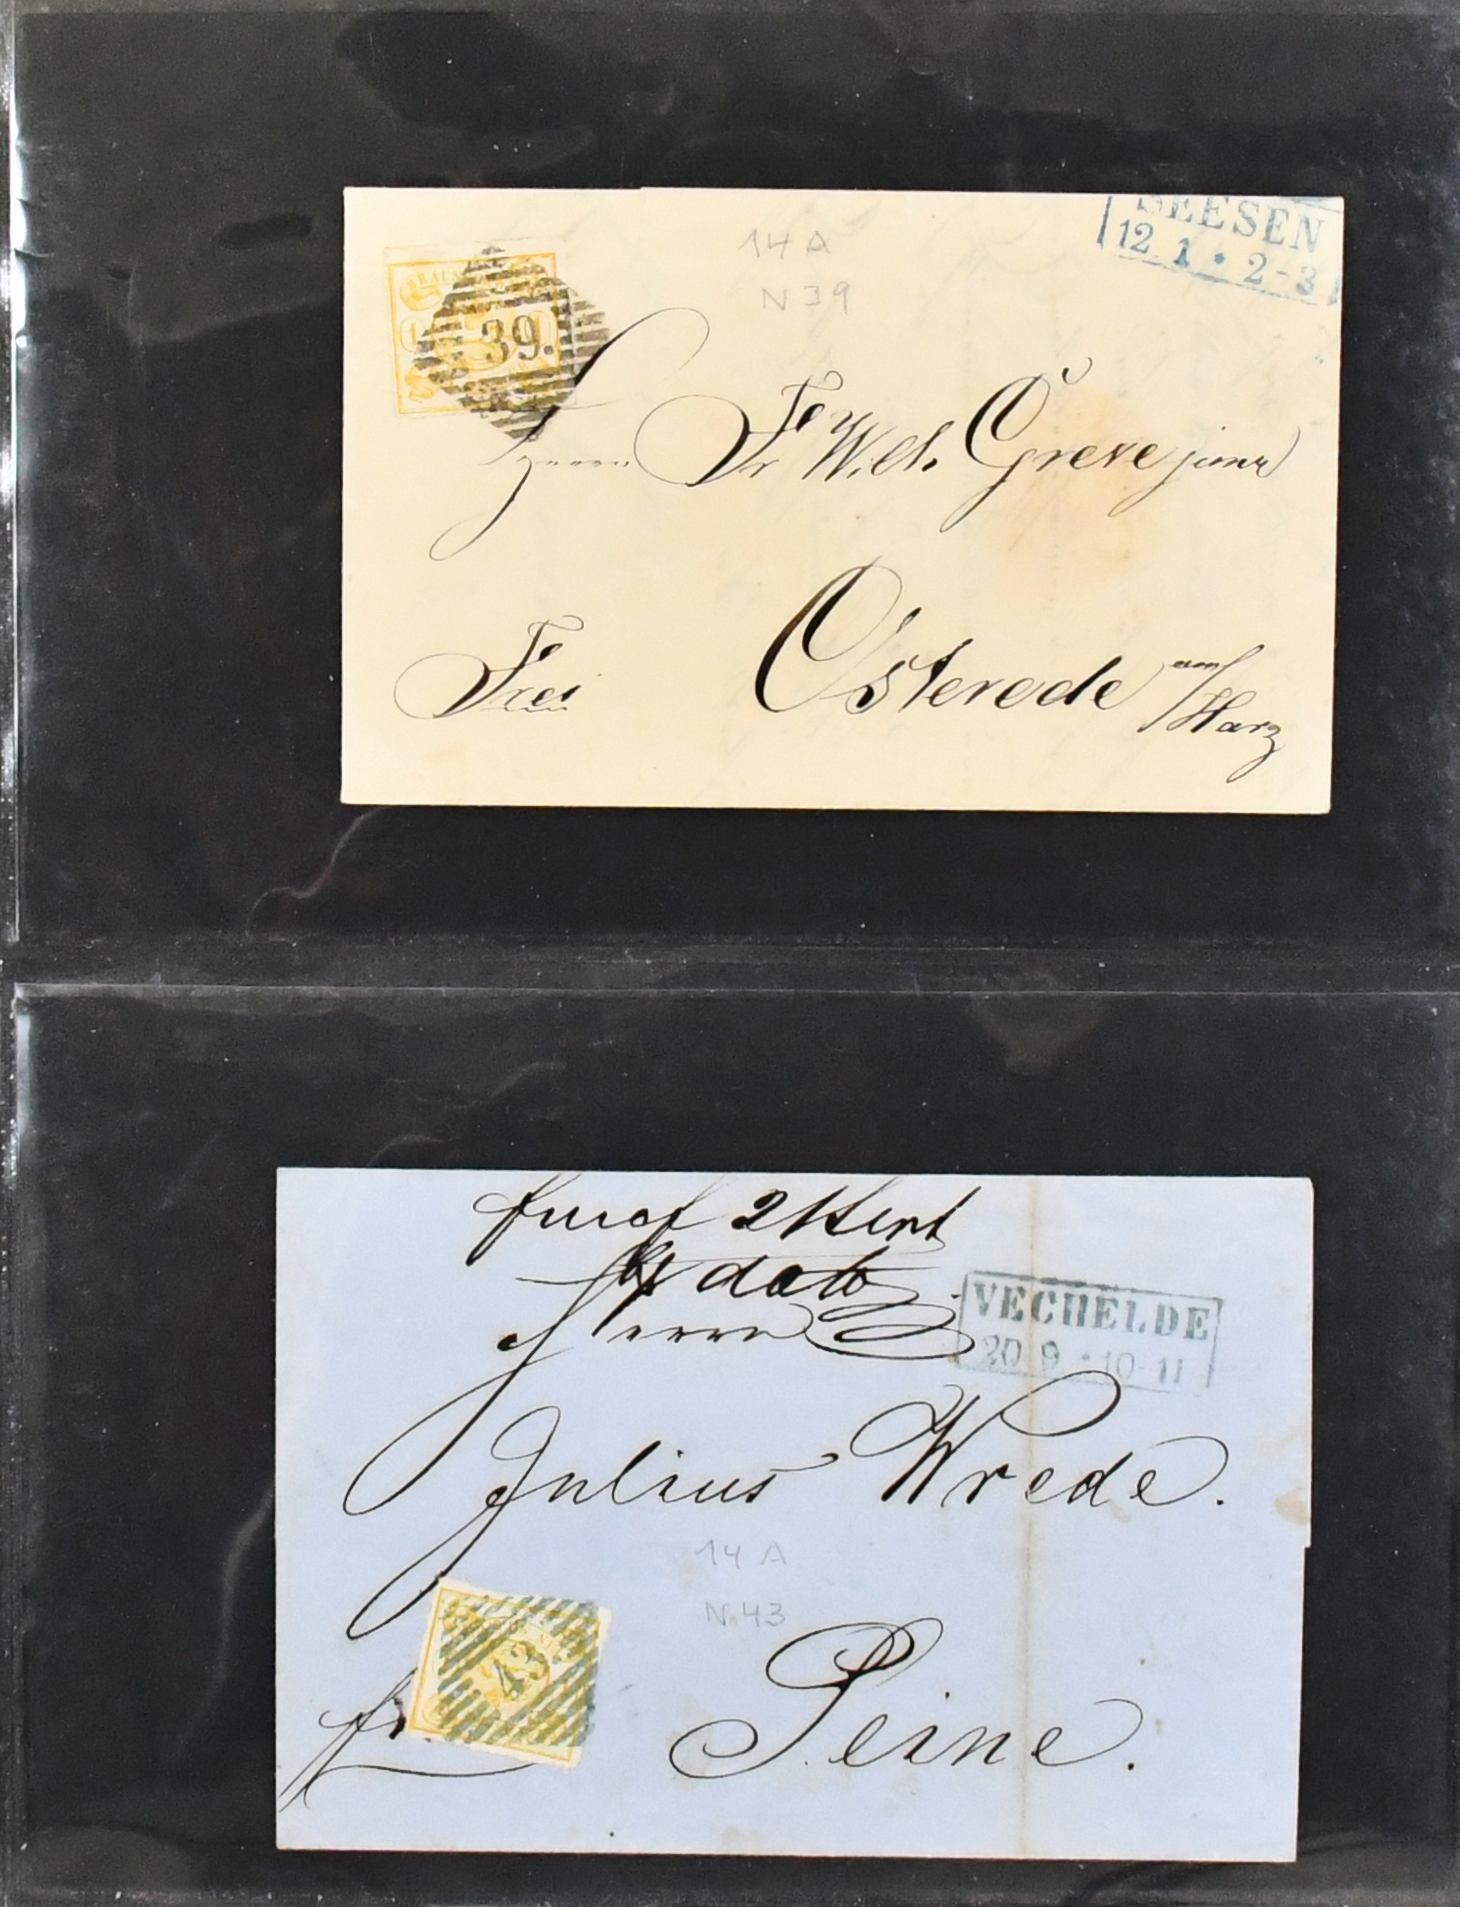 14 A
N 39
SEESEN
12 1 * 2-3
39.
Herrn Fr Wilh. Greve junr
Frei
Osterode am/Harz
2
dato
Herrn
VECHELDE
20 9 * 10-11
Julius Wrede.
14 A
N. 43
43
fr.
Peine.